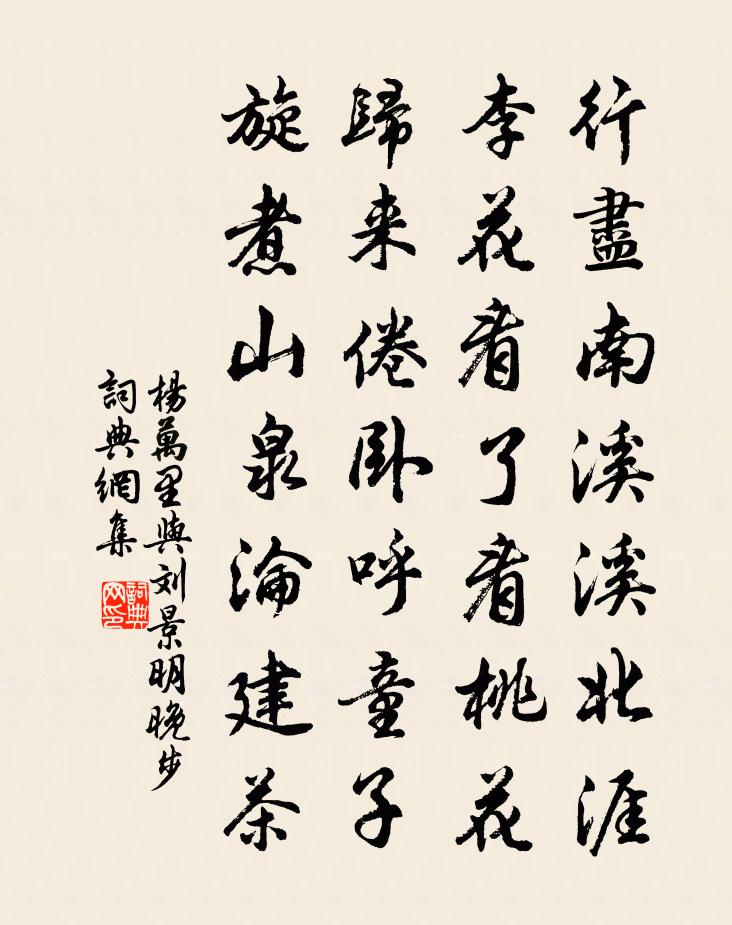 行盡南溪溪北涯
李花看了看桃花
歸来倦卧呼童子
旋煮山泉淪建茶
楊萬里與刘景明晚步
詞典網集
詞典网印